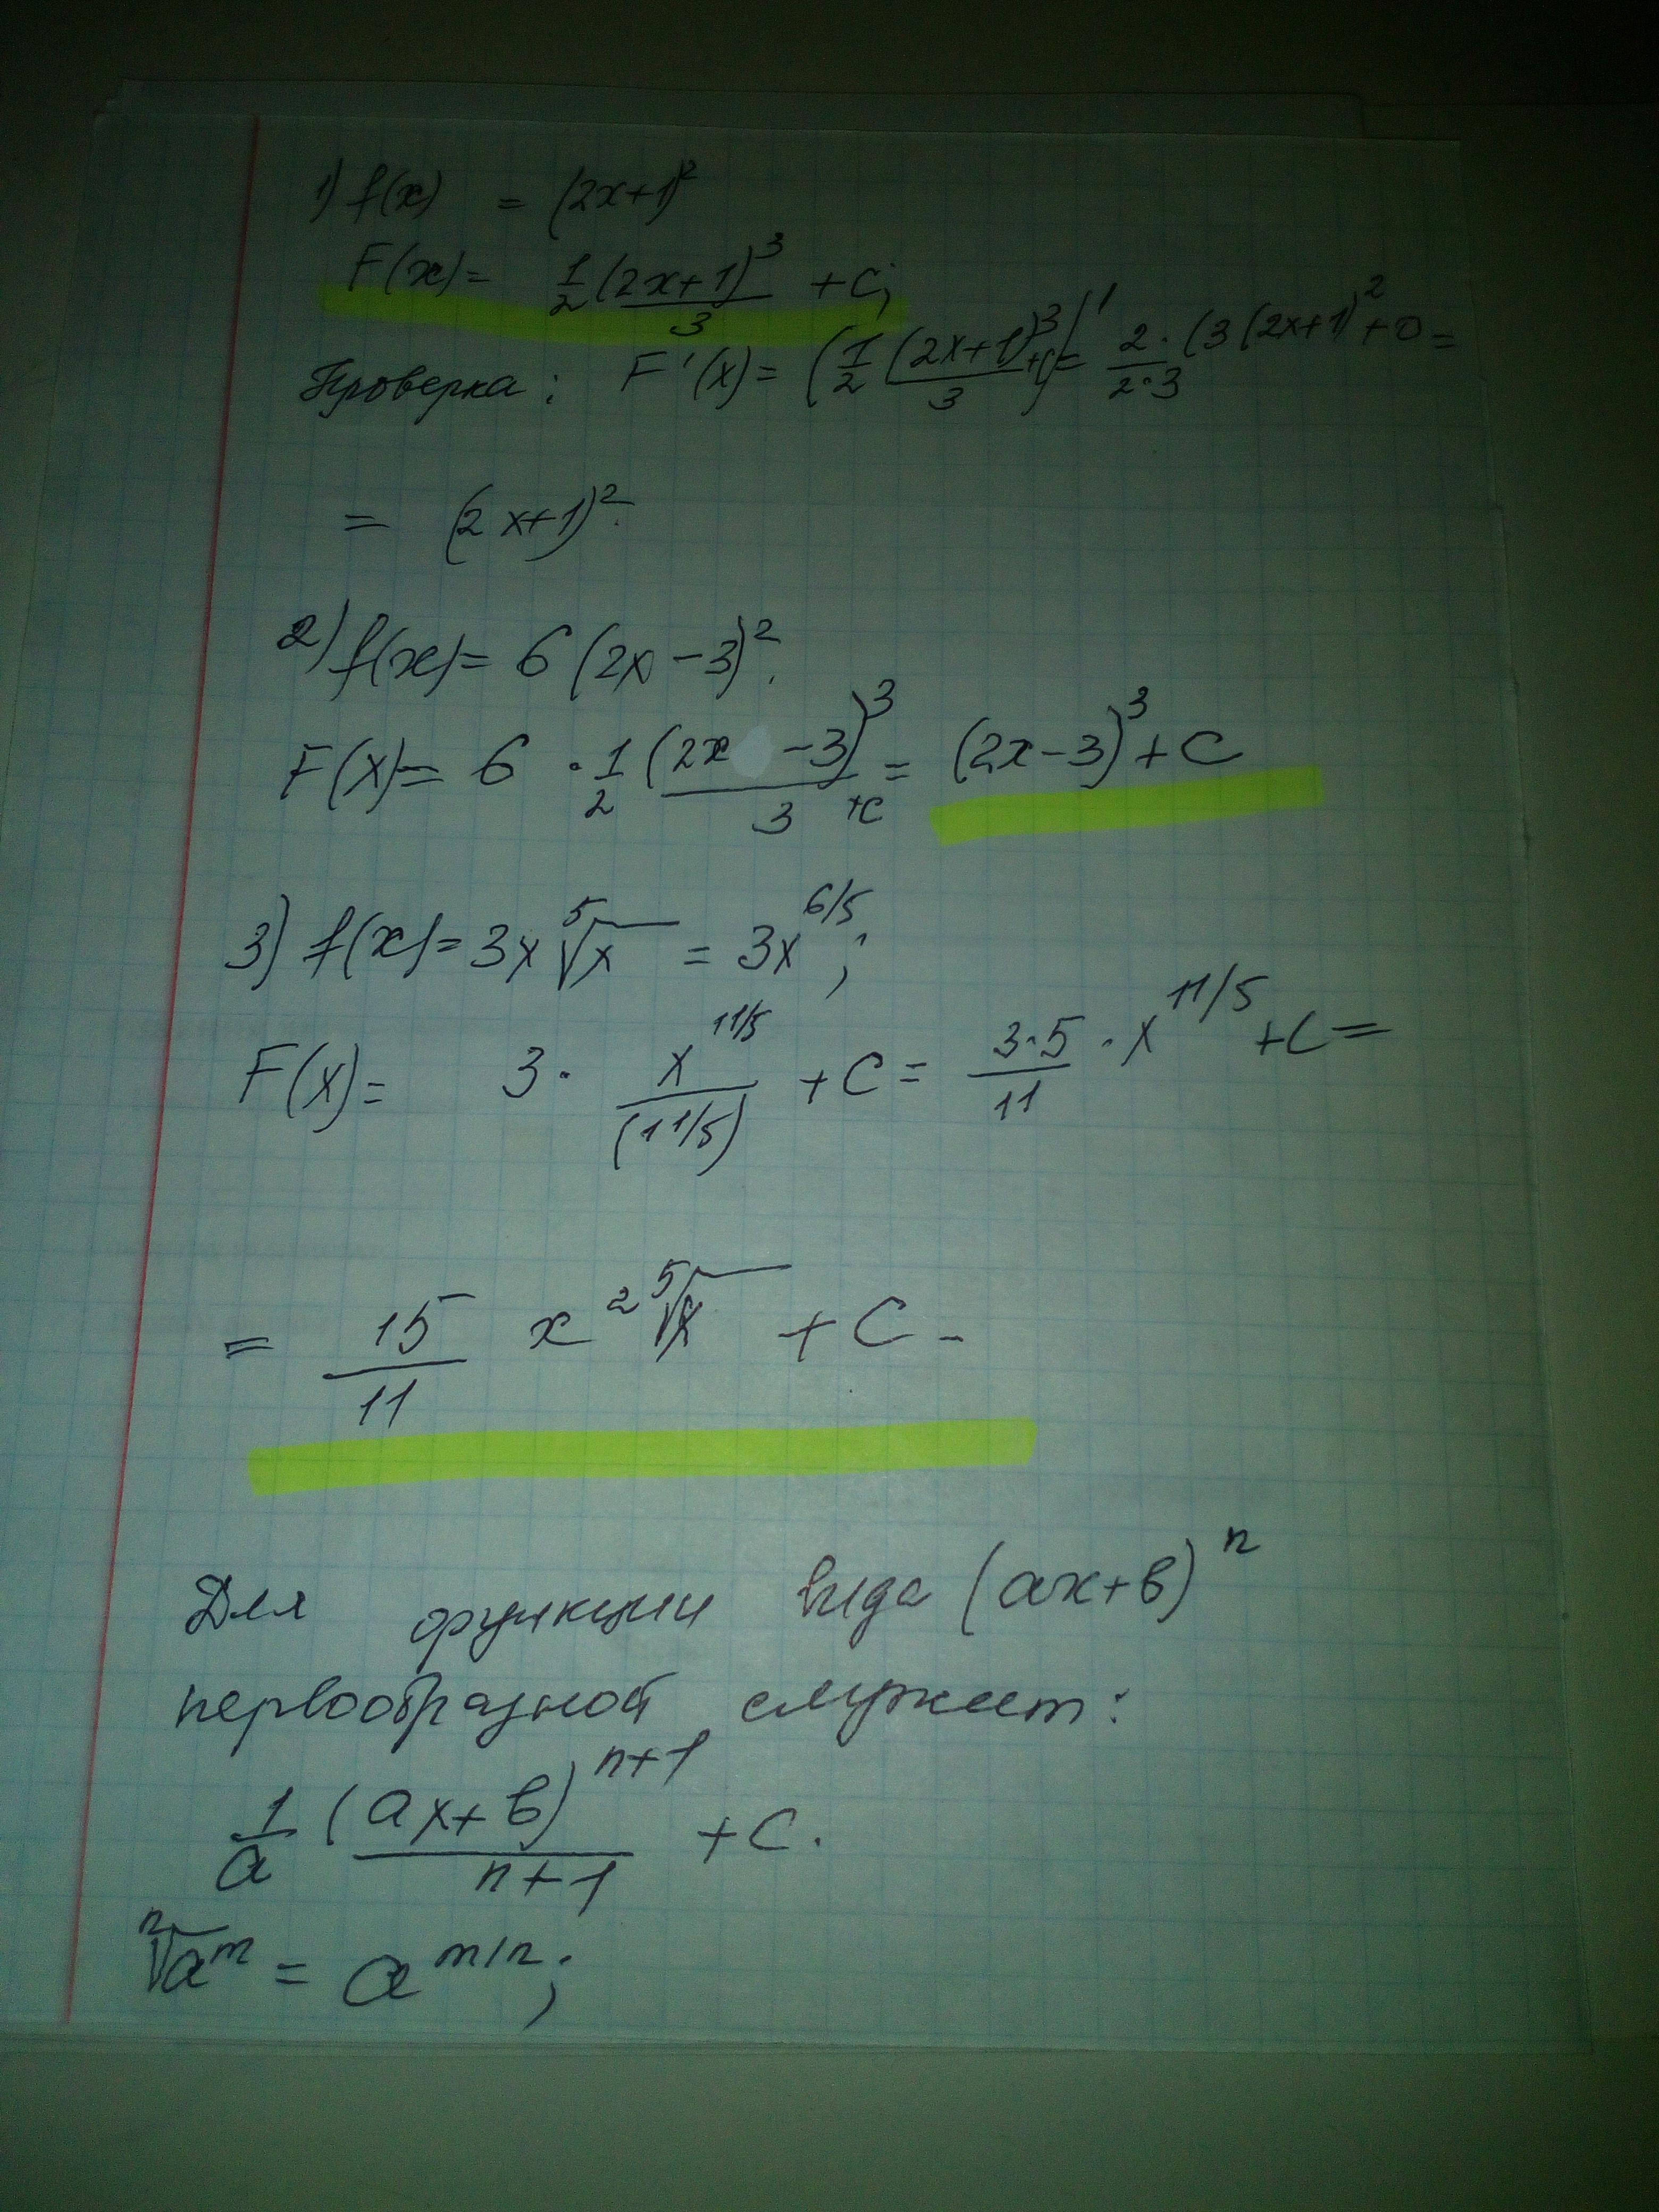 1) f(x) = (2x+1)²
F(x) = 1/2 (2x+1)³/3 + C;
Проверка: F'(x) = (1/2 (2x+1)³/3 + C)' = 2/2·3 · (3(2x+1)² + 0 =
= (2x+1)².
2) f(x) = 6(2x-3)².
F(x) = 6 · 1/2 (2x-3)³/3 + C = (2x-3)³ + C
3) f(x) = 3x ⁵√x = 3x^6/5;
F(x) = 3 · x^11/5/(11/5) + C = 3·5/11 · x^11/5 + C =
= 15/11 x² ⁵√x + C -
Для функции вида (ax+b)ⁿ
первообразной служит:
1/a (ax+b)^n+1/n+1 + C.
ⁿ√aᵐ = a^m/n;